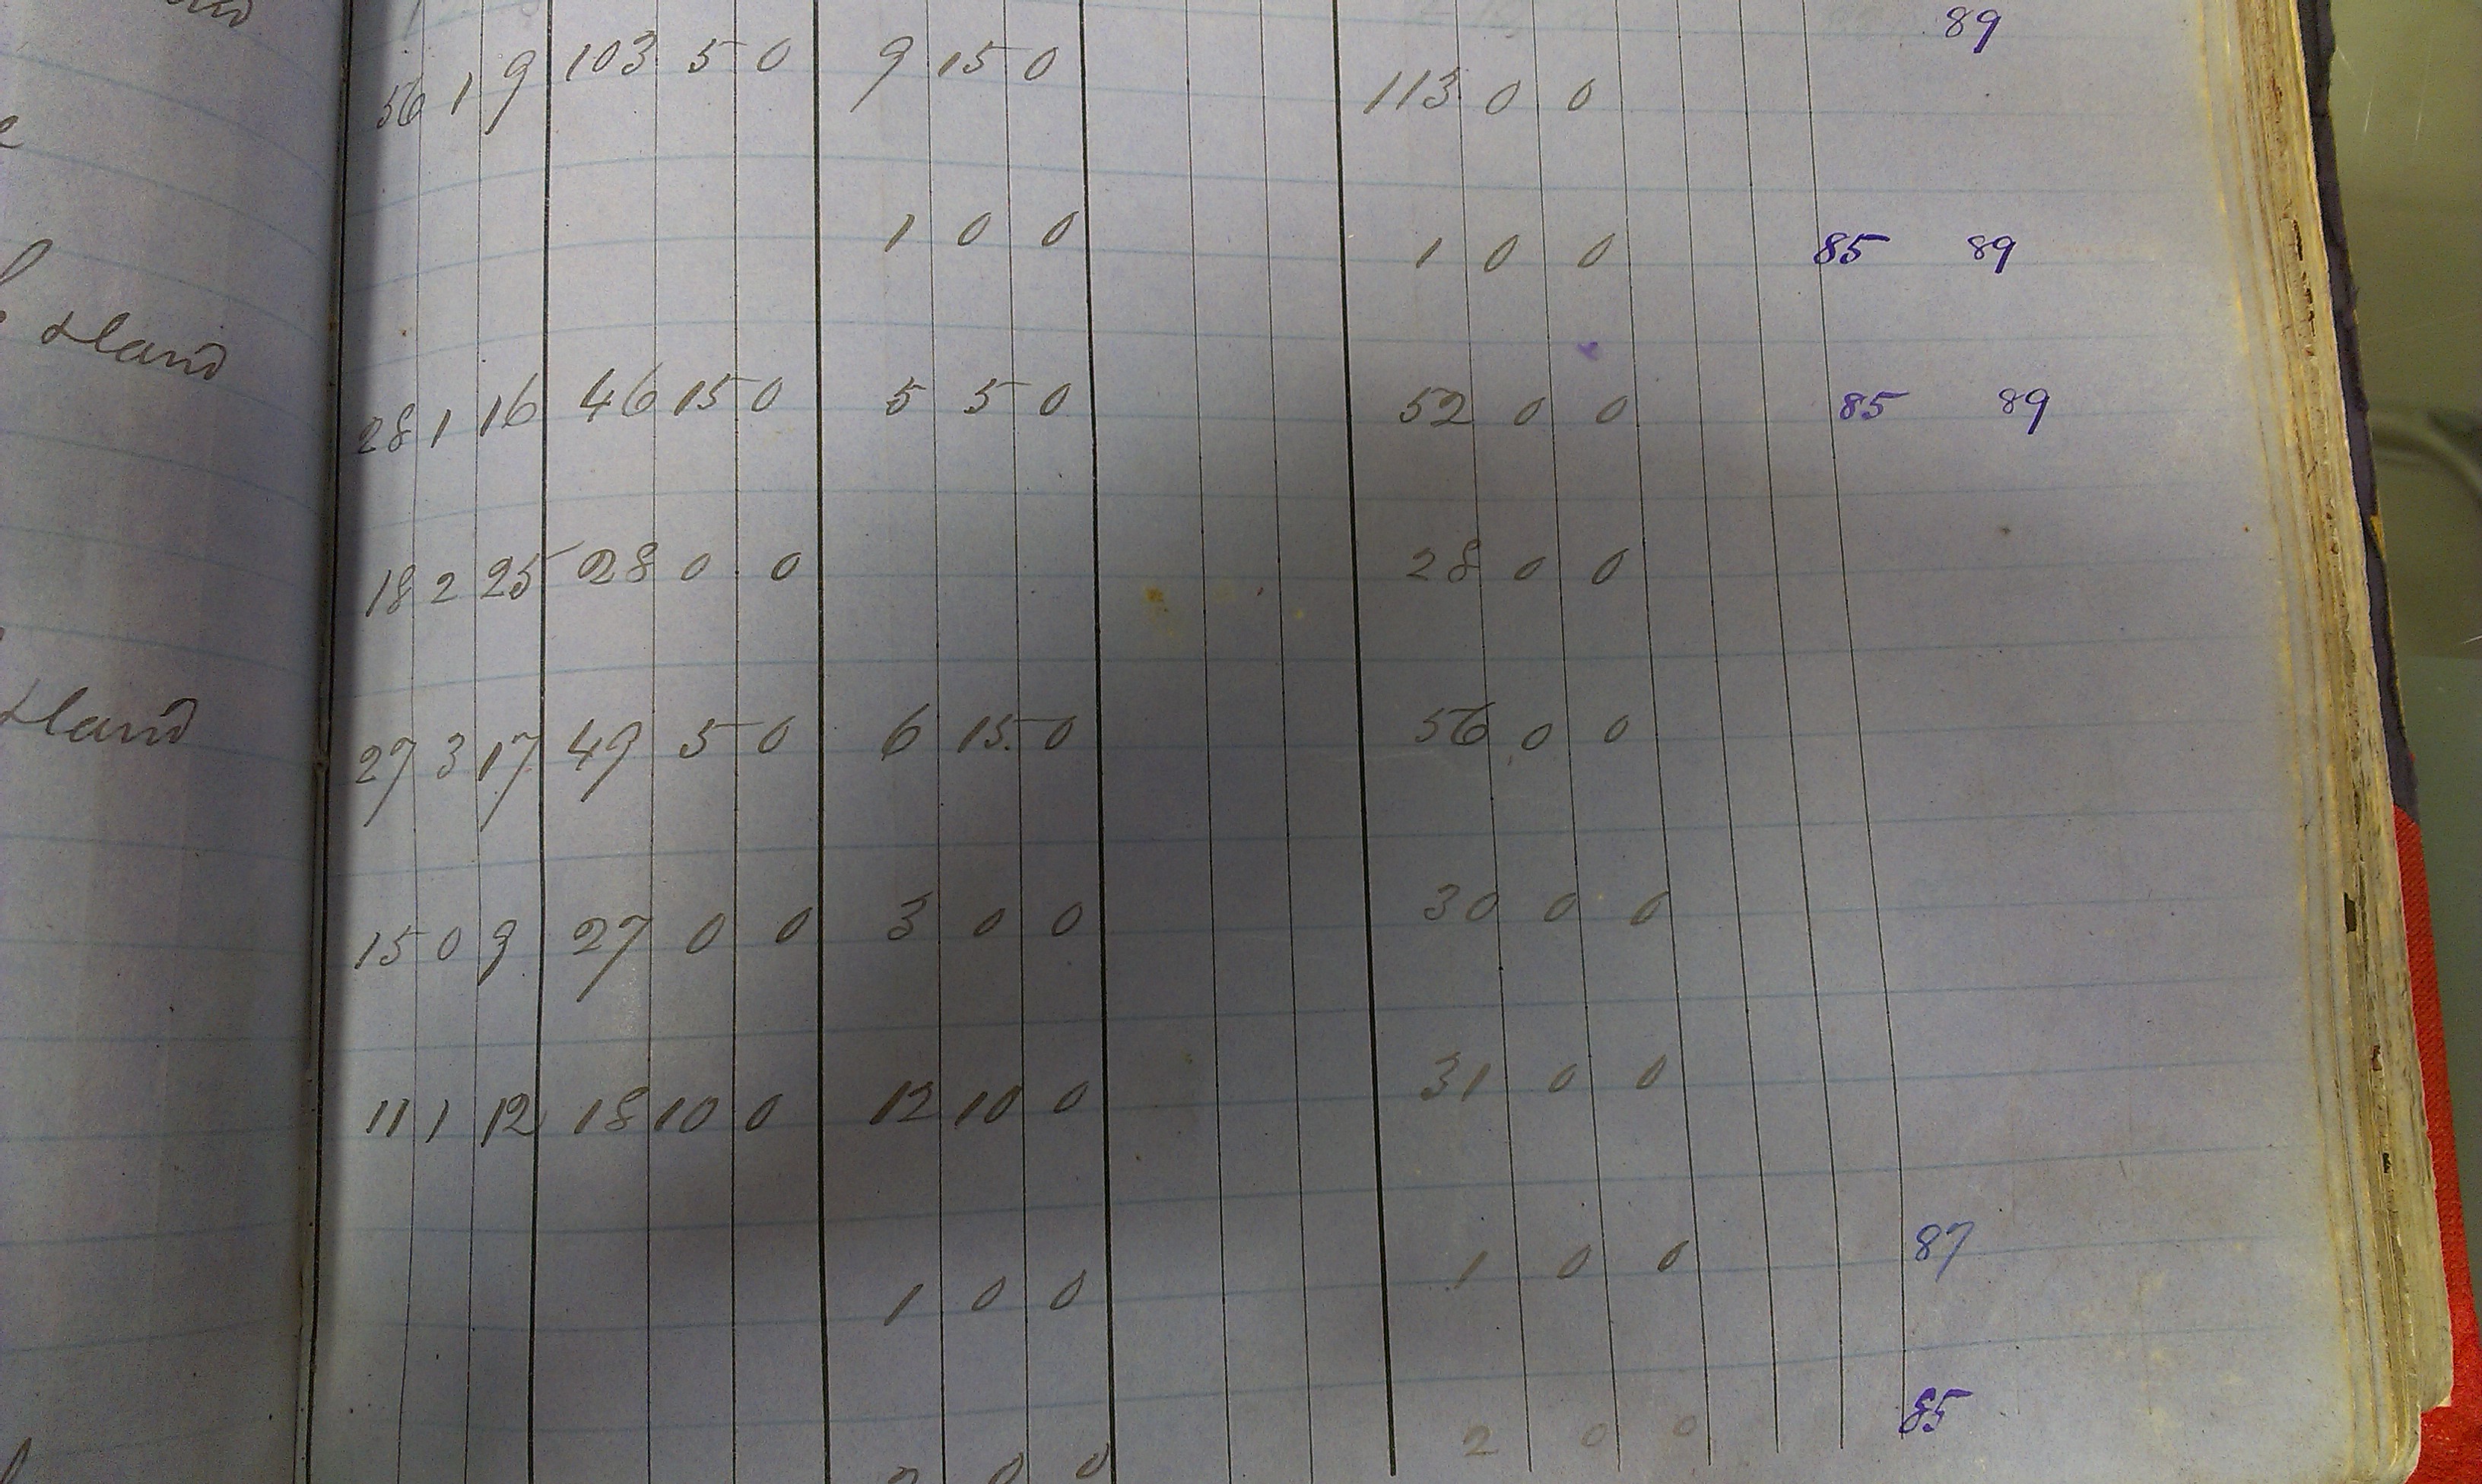 89
56 1 9 103 5 0 9 15 0 113 0 0
1 0 0 1 0 0 85 89
& Land
28 1 16 46 15 0 5 5 0 52 0 0 85 89
18 2 25 28 0 0 28 0 0
& Land
27 3 17 49 5 0 6 15 0 56 0 0
15 0 9 27 0 0 3 0 0 30 0 0
11 1 12 18 10 0 12 10 0 31 0 0
1 0 0 1 0 0 87
2 0 0 2 0 0 85